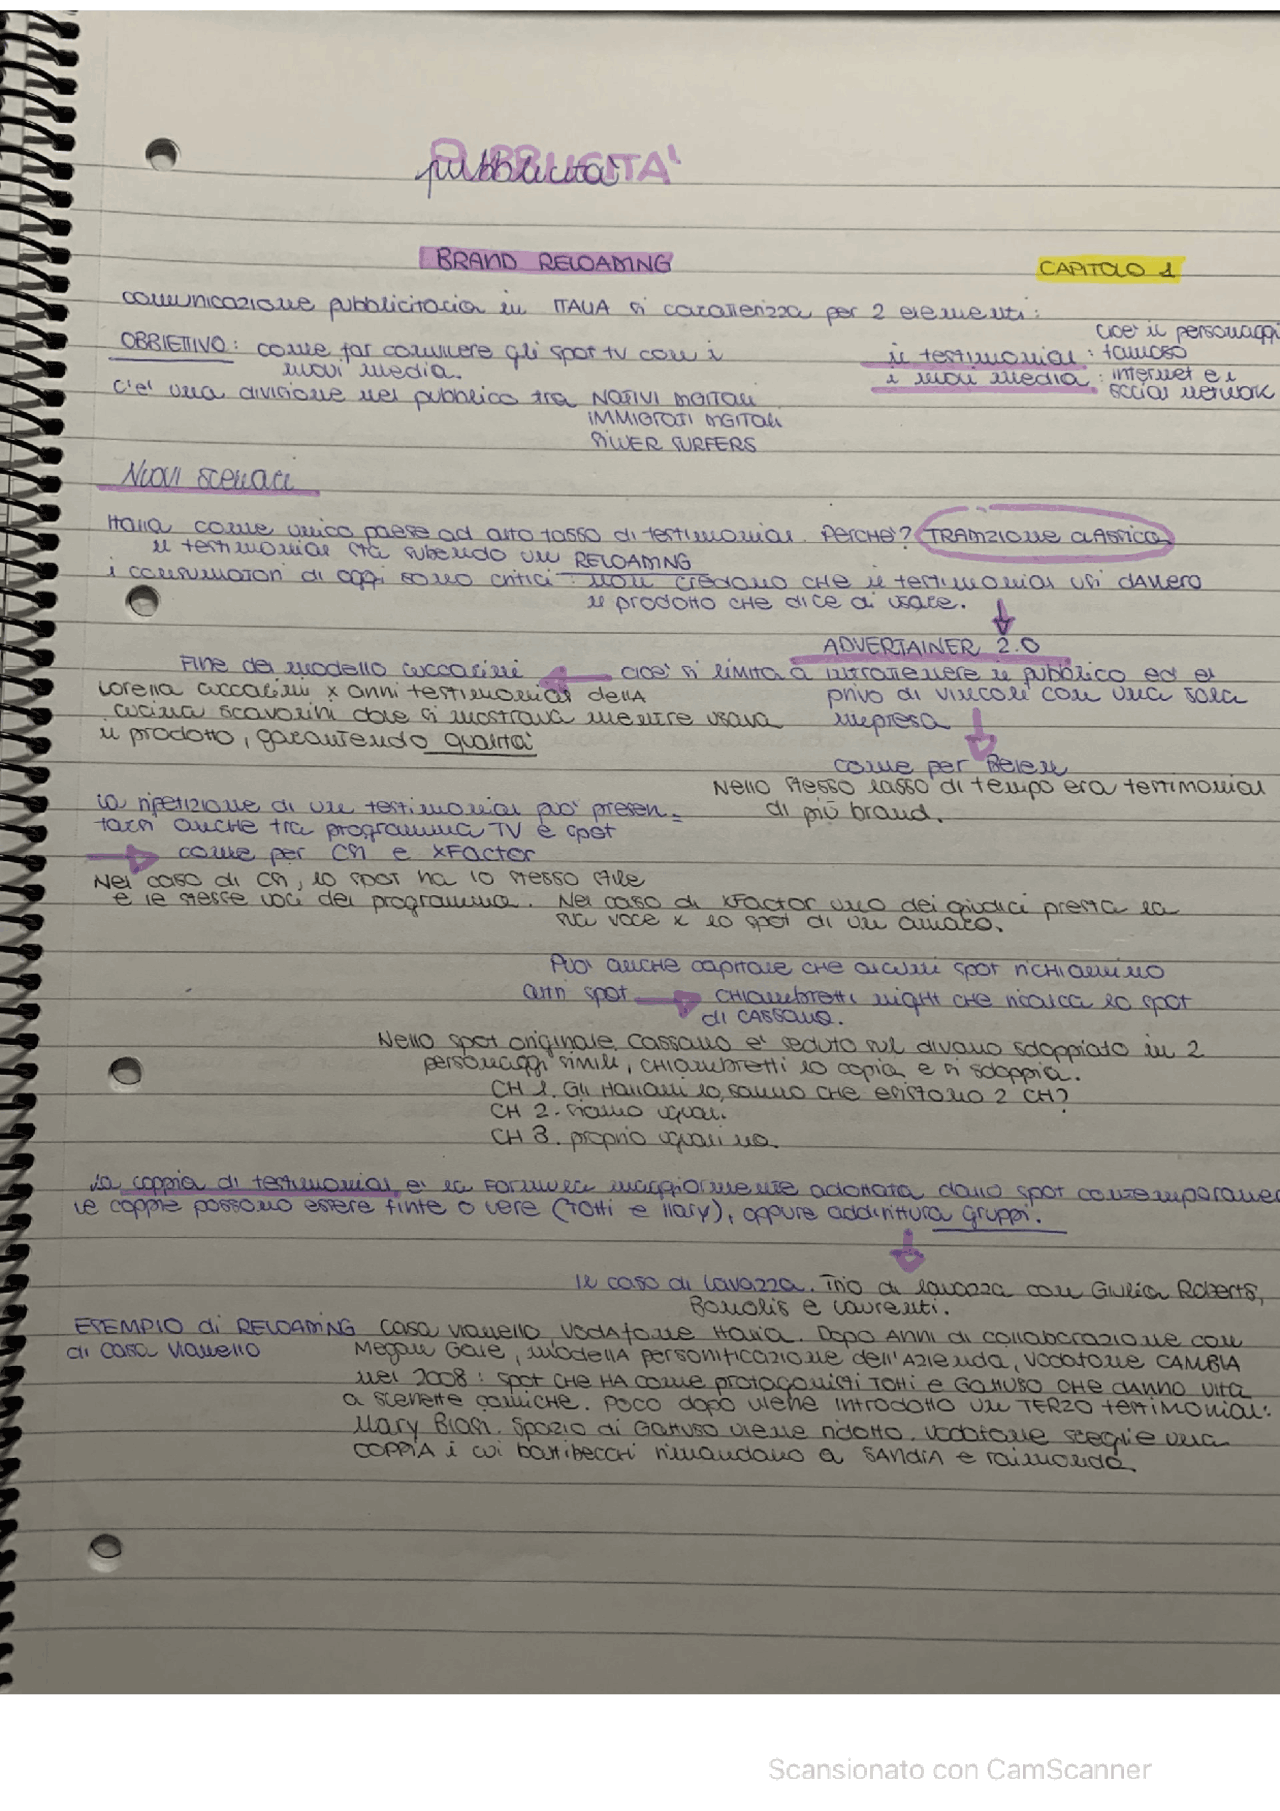 PUBBLICITA'
pubblicità
BRAND RELOADING
CAPITOLO 1
comunicazione pubblicitaria in ITALIA si caratterizza per 2 elementi:
il testimonial : cioè il personaggio famoso
i nuovi media : internet e i social network
OBBIETTIVO: come far convivere gli spot tv con i
nuovi media.
C'e' una divisione nel pubblico tra NATIVI DIGITALI
IMMIGRATI DIGITALI
SILVER SURFERS
Nuovi scenari
Italia come unico paese ad alto tasso di testimonial. Perche'? TRADIZIONE CLASSICA
il testimonial sta subendo un RELOADING
i consumatori di oggi sono critici: non credono che il testimonial usi davvero
il prodotto che dice di usare.
ADVERTAINER 2.0
Fine del modello cuccarini
cioe' si limita a intrattenere il pubblico ed e'
privo di vincoli con una sola
impresa
Lorella cuccarini x anni testimonial della
cucina scavolini dove si mostrava mentre usava
il prodotto, garantendo qualità
come per Belen
Nello stesso lasso di tempo era testimonial
di più brand.
la ripetizione di un testimonial puo' presen=
tarsi anche tra programma TV e spot
come per CSI e XFactor
Nel caso di CSI, lo spot ha lo stesso stile
e le stesse voci del programma. Nel caso di XFactor uno dei giudici presta la
sua voce x lo spot di un amaro.
Puo' anche capitare che alcuni spot richiamino
altri spot
chiambretti night che ricalca lo spot
di CASSANO.
Nello spot originale, Cassano e' seduto sul divano sdoppiato in 2
personaggi simili, chiambretti lo copia e si sdoppia.
CH 1. Gli italiani lo sanno che esistono 2 CH?
CH 2. Siamo uguali.
CH 3. proprio uguali no.
la coppia di testimonial e' la formula maggiormente adottata dallo spot contemporaneo
le coppie possono essere finte o vere (Totti e Ilary), oppure addirittura gruppi.
Il caso di Lavazza. Trio di lavazza con Giulia Roberts,
Bonolis e Laurenti.
ESEMPIO di RELOADING
di casa vianello
Casa vianello, Vodafone Italia. Dopo Anni di collaborazione con
Megan Gale, modella personificazione dell'Azienda, Vodafone CAMBIA
nel 2008: spot che ha come protagonisti TOTTI e GATTUSO che danno vita
a scenette comiche. Poco dopo viene introdotto un TERZO testimonial:
Ilary Blasi. Spazio di Gattuso viene ridotto. Vodafone sceglie una
COPPIA i cui battibecchi rimandano a SANDRA e raimondo.
Scansionato con CamScanner